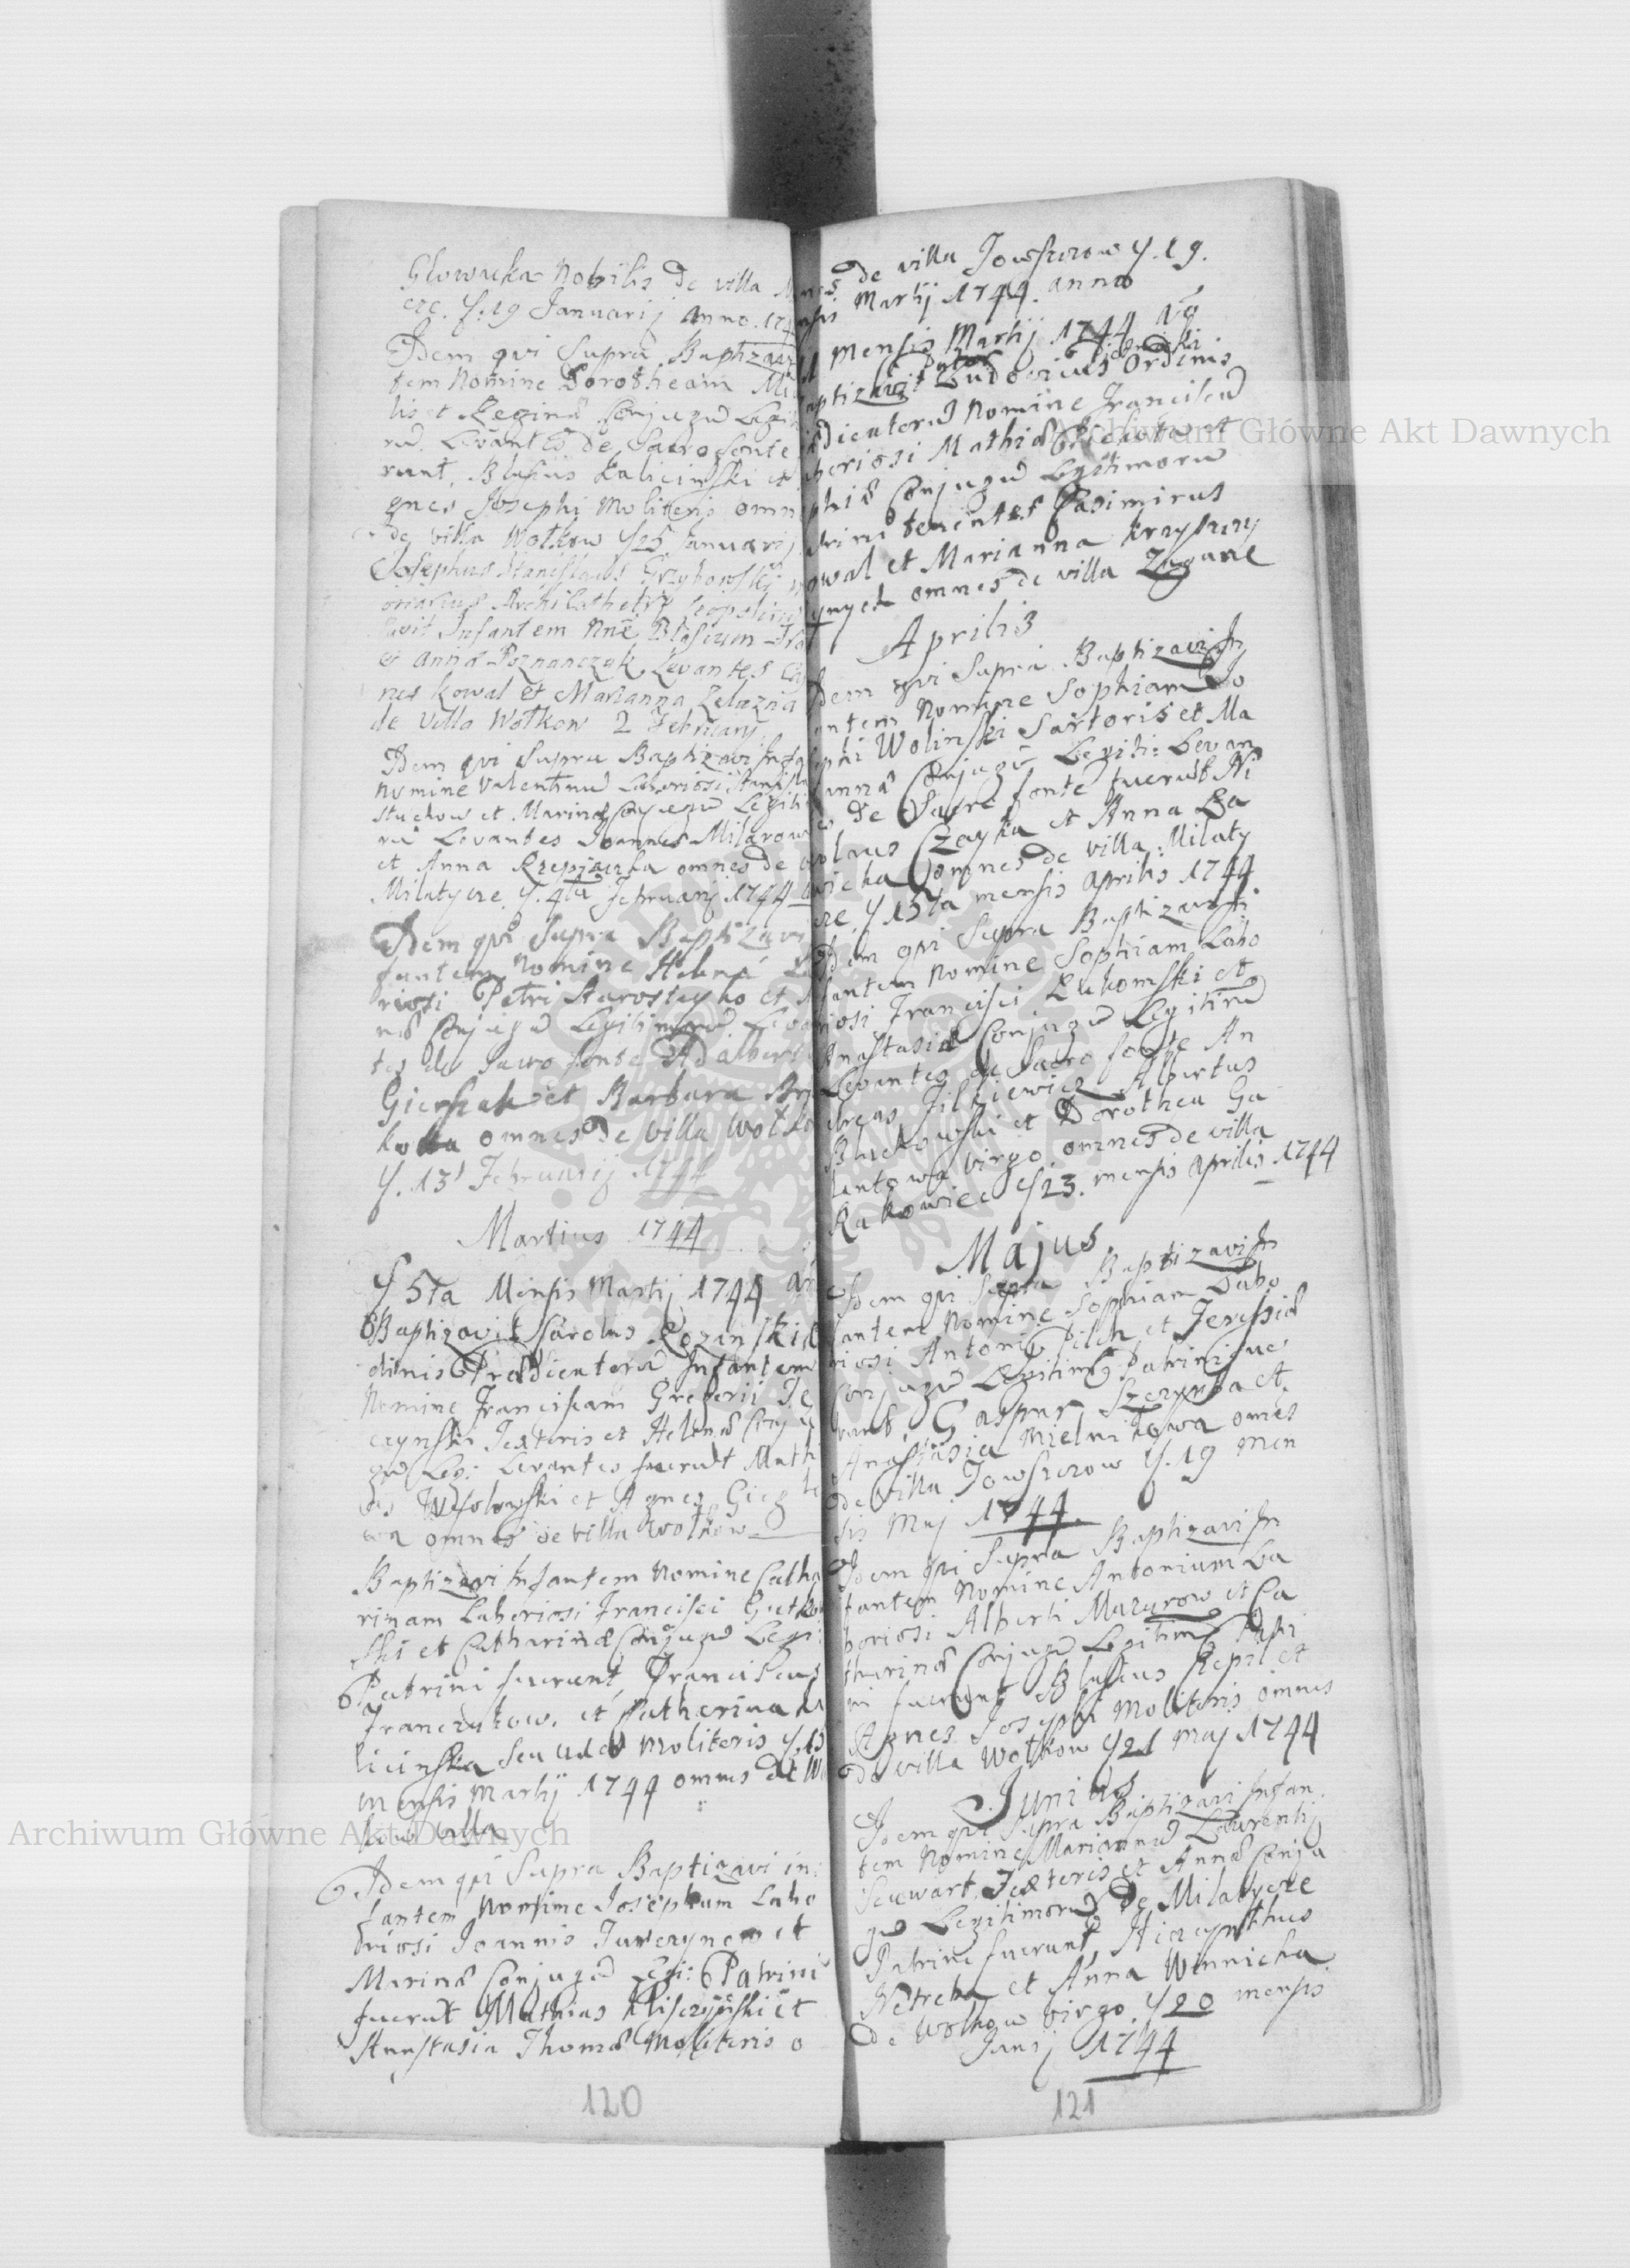 Głowacka Nobilis de villa
cze. 19 Januarij Anno. 17
Idem qui Supra Baptizavi
tem Nomine Dorotheam Mi
lis et Reginæ Conjugū Legit
rū. Levantes de Sacro fonte
runt, Blasius Kalicinski et
gnes Josephi Molitoris omn
de villa Wołkow 25 Januarij
Josephus Stanislaus Grzybowski
Archi Cathedr Leopolien
savit Infantem Nnē Blasium
et Annæ Poznanczyk Levantes
nes Kowal et Marianna Zelazna
de Villa Wołkow 2 Februarij
Idem qui Supra Baptizavi Infa
Nomine Valentinū Laboriosi Stanisla
Stuchow et Marinæ Conjugū Legiti
rū Levantes Joannes Milarow
et Anna Rzepiaczka omnes de
Milatycze 4ta Februarij 1744
Idem qui Supra Baptizavi
fantem Nomine Helenā
riosi Petri Starostayko et
næ Conjugū Legitimorū Leva
tes de Sacro fonte Adalbert
Gierszak et Barbara
omnes de villa Wołko
13 Februarij 1744
Martius 1744
5ta Mensis Martij 1744
Baptizavit Carolus Rozanski
dinis Prædicatorū Infantem
Nomine Franciscam Gregorii
czynski Textoris et Helenæ Conju
gū Leg: Levantes fuerūt Math
as Wesolowski et Agnes
wa omnes de villa Wołkow
Baptizavi Infantem Nomine Catha
rinam Laboriosi Francisci Gutko
ski et Catharinæ Conjugū Legi:
Patrini fuerunt, Franciscus
Franczukow. et Catharina
licinska seu Molitoris
mensis Martij 1744 omnes de W
kow villa
Idem qui Supra Baptizavi in
fantem Nomine Josephum Labo
riosi Joannis et
Marinæ Conjugū Legi: Patrini
fuerūt Mathias et
Anastasia Thomæ Molitoris o
120
nes de villa Towszczow 19.
nsis Martij 1744. anno
mensis Martij 1744
Pater
aptizavit Ludovicus Ordinis
Prædicatorū Nomine Franciscū
boriosi Mathiæ et
phiæ Conjugū Legitimorū
trini tenentes Casimirus
Kowal et Marianna
omnes de villa Zagurze
Aprilis
Idem qui Supra Baptizavi In
fantem Nomine Sophiam Jo
sephi Wolinski Sartoris et Ma
riannæ Conjugū Legiti: Levan
tes de Sacro fonte fuerūt Ni
colaus Czayka et Anna Ła
wicka omnes de villa Milaty
cze 15ta mensis Aprilis 1744
Idem qui Supra Baptizavi In
fantem Nomine Sophiam Labo
riosi Francisci Lukomski et
Anastasiæ Conjugū Legitimū
Levantes de Sacro fonte An
dreas Filkiewicz Albertus
et Dorothea Ga
lantowa Virgo omnes de villa
Rakowiec 23. mensis Aprilis 1744
Majus
Idem qui Supra Baptizavi In
fantem Nomine Sophiam Labo
riosi Antoni Pilch et Teressiæ
Conjugū Legitimo: Patrini fue
runt, Gaspar Szczyrba et
Anastasia Mielnikowa omēs
de villa Towszczow 19 Men
sis Maj 1744.
Idem qui Supra Baptizavi In
fantem Nomine Antonium La
boriosi Alberti Mazurow et Ca
tharinæ Conjugū Legitimo: Patri
ni fuerunt Blasius et
Agnes Josephi Molitoris omnes
de villa Wołkow 21 Maj 1744
Junius
Idem qui Supra Baptizavi Infan
tem Nomine Mariannū Laurentij
Textoris et Annæ Conju
gū Legitimorū de Milatycze
Patrini fuerunt Hiacynthus
Netreba et Anna Winnicka
de Wołkow virgo 20 mensis
Junij 1744
121
Archiwum Główne Akt Dawnych
Archiwum Główne Akt Dawnych